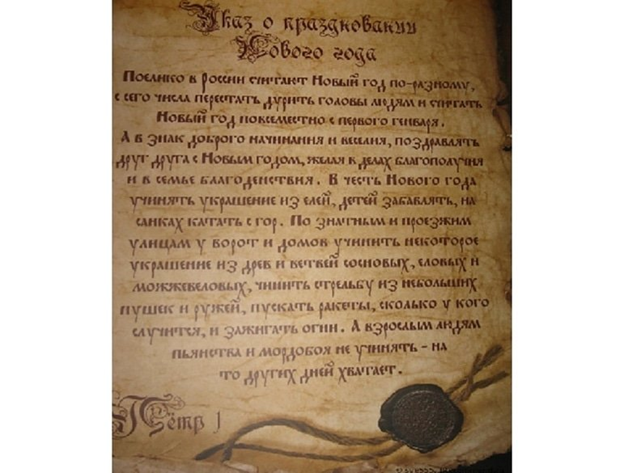 Указ о праздновании
Нового года
Поелику в России считают Новый год по-разному,
с сего числа перестать дурить головы людям и считать
Новый год повсеместно с первого генваря.
А в знак доброго начинания и веселия, поздравлять
друг друга с Новым годом, желая в делах благополучия
и в семье благоденствия. В честь Нового года
учинять украшение из елей, детей забавлять, на
санках катать с гор. По знатным и проезжим
улицам у ворот и домов учинить некоторое
украшение из древ и ветвей сосновых, еловых и
можжевеловых, чинить стрельбу из небольших
пушек и ружей, пускать ракеты, сколько у кого
случится, и зажигать огни. А взрослым людям
пьянства и мордобоя не учинять - на
то других дней хватает.
Пётр I